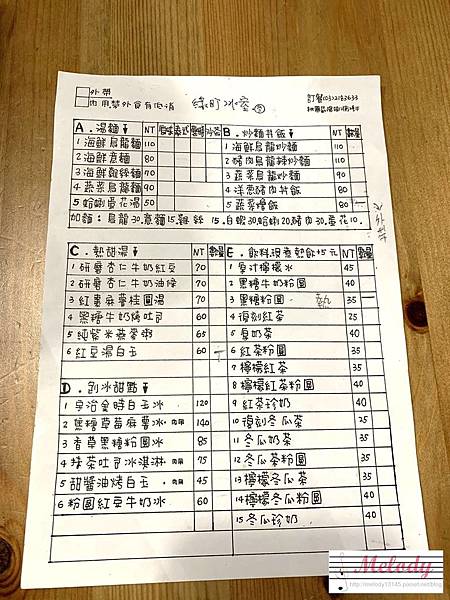 外帶
內用禁外食有低消
綠町冰堂
訂餐(03)2182633
A.湯麵 NT 數量
1 海鮮烏龍麵 110
2 海鮮意麵 80
3 海鮮雞絲麵 70
4 蔬菜烏龍麵 90
5 蛤蜊蛋花湯 50
B.炒麵丼飯 NT 數量
1 海鮮烏龍炒麵 110
2 豬肉烏龍辣炒麵 110
3 蔬菜烏龍炒麵 90
4 洋蔥豬肉丼飯 80
5 蔬菜燴飯 80
加麵:烏龍30.意麵15.雞絲15.白蝦30.蛤蜊20.豬肉30.蛋花10.
C.熱甜湯 NT 數量
1 研磨杏仁牛奶紅豆 70
2 研磨杏仁牛奶油條 70
3 紅棗蓮薏桂圓湯 70
4 黑糖牛奶烤吐司 60
5 純紫米燕麥粥 65
6 紅豆湯白玉 60
D.刨冰甜點
1 宇治金時白玉冰 120
2 焦糖草莓麻薯冰.內用 140
3 香草黑糖粉圓冰 85
4 抹茶吐司冰淇淋.內用 75
5 甜醬油烤白玉.內用 45
6 粉圓紅豆牛奶冰 60
E.飲料現煮熱飲+5元 NT 數量
1 原汁檸檬冰 45
2 黑糖牛奶粉圓 40
3 黑糖粉圓 熱 35
4 復刻紅茶 25
5 厚奶茶 40
6 紅茶粉圓 35
7 檸檬紅茶 35
8 檸檬紅茶粉圓 40
9 紅茶珍奶 40
10 復刻冬瓜茶 25
11 冬瓜奶茶 35
12 冬瓜茶粉圓 35
13 檸檬冬瓜茶 35
14 檸檬冬瓜粉圓 40
15 冬瓜珍奶 40
Melody
http://melody13145.pixnet.net/blog